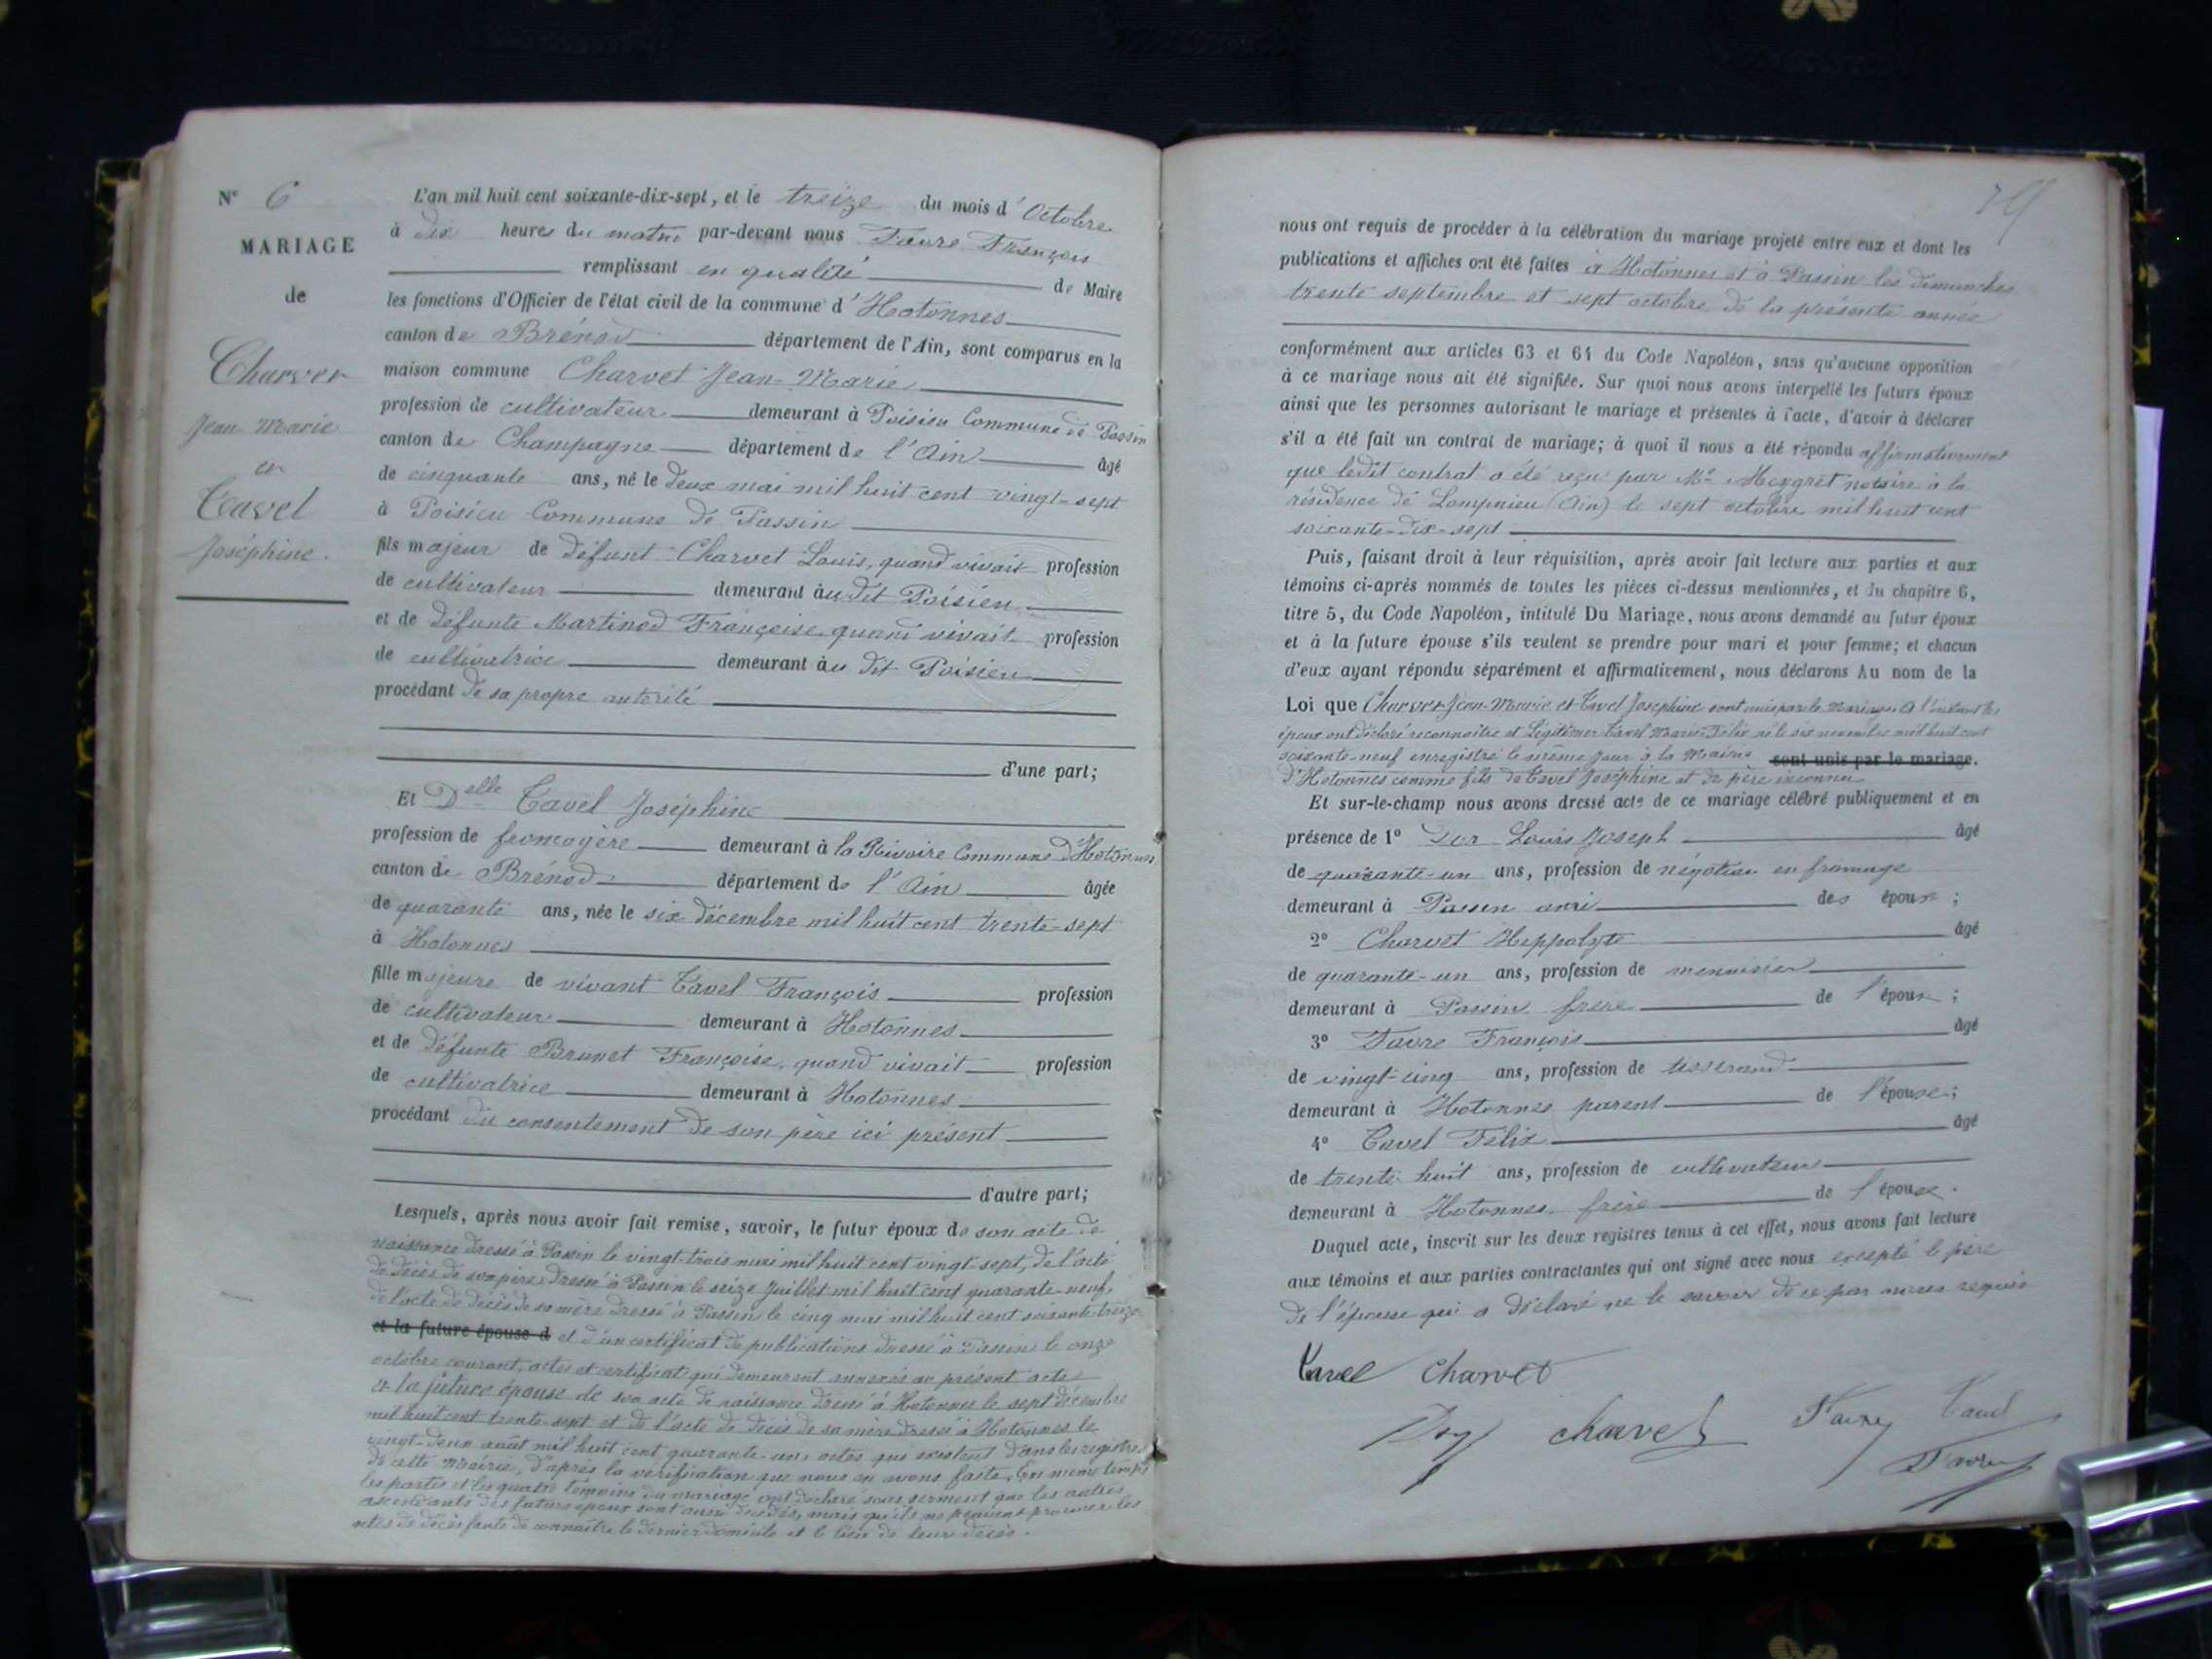 N° 6
MARIAGE
de
Charvet
Jean-Marie
et
Tavel
Joséphine.
L'an mil huit cent soixante-dix-sept, et le treize du mois d'Octobre
à dix heures du matin par-devant nous Favre François
remplissant en qualité de Maire
les fonctions d'Officier de l'état civil de la commune d'Hotonnes
canton de Brénod département de l'Ain, sont comparus en la
maison commune Charvet Jean-Marie
profession de cultivateur demeurant à Poisieu Commune de Passin
canton de Champagne département de l'Ain âgé
de cinquante ans, né le deux mai mil huit cent vingt-sept
à Poisieu Commune de Passin
fils majeur de défunt Charvet Louis, quand vivait profession
de cultivateur demeurant au dit Poisieu
et de défunte Martinod Françoise quand vivait profession
de cultivatrice demeurant au dit Poisieu
procédant de sa propre autorité
d'une part;
Et Delle Tavel Joséphine
profession de fromagère demeurant à la Rivoire Commune d'Hotonnes
canton de Brénod département de l'Ain âgée
de quarante ans, née le six décembre mil huit cent trente-sept
à Hotonnes
fille majeure de vivant Tavel François profession
de cultivateur demeurant à Hotonnes
et de défunte Brunet Françoise, quand vivait profession
de cultivatrice demeurant à Hotonnes
procédant du consentement de son père ici présent
d'autre part;
Lesquels, après nous avoir fait remise, savoir, le futur époux de son acte de
naissance dressé à Passin le vingt-trois mai mil huit cent vingt sept, de l'acte
de décès de son père dressé à Passin le seize Juillet mil huit cent quarante-neuf,
de l'acte de décès de sa mère dressé à Passin le cinq mai mil huit cent soixante-treize
et la future épouse d et d'un certificat de publications dressé à Passin le onze
octobre courant, actes et certificat qui demeurent annexés au présent acte
et la future épouse de son acte de naissance dressé à Hotonnes le sept décembre
mil huit cent trente-sept et de l'acte de décès de sa mère dressé à Hotonnes le
vingt-deux août mil huit cent quarante-un, actes qui existent dans les registres
de cette Mairie, d'après la vérification que nous en avons faite. En même temps
les parties et les quatre témoins du mariage ont déclaré sous serment que les autres
ascendants des futurs époux sont aussi décédés, mais qu'ils ne peuvent procurer les
actes de décès faute de connaître le dernier domicile et le lieu de leur décès.
nous ont requis de procéder à la célébration du mariage projeté entre eux et dont les
publications et affiches ont été faites à Hotonnes et à Passin les dimanches
trente septembre et sept octobre de la présente année
conformément aux articles 63 et 64 du Code Napoléon, sans qu'aucune opposition
à ce mariage nous ait été signifiée. Sur quoi nous avons interpellé les futurs époux
ainsi que les personnes autorisant le mariage et présentes à l'acte, d'avoir à déclarer
s'il a été fait un contrat de mariage; à quoi il nous a été répondu affirmativement
que ledit contrat a été reçu par Me Meygret notaire à la
résidence de Lompnieu (Ain) le sept octobre mil huit cent
soixante-dix-sept
Puis, faisant droit à leur réquisition, après avoir fait lecture aux parties et aux
témoins ci-après nommés de toutes les pièces ci-dessus mentionnées, et du chapitre 6,
titre 5, du Code Napoléon, intitulé Du Mariage, nous avons demandé au futur époux
et à la future épouse s'ils veulent se prendre pour mari et pour femme; et chacun
d'eux ayant répondu séparément et affirmativement, nous déclarons Au nom de la
Loi que Charvet Jean-Marie et Tavel Joséphine sont unis par le Mariage. A l'instant les
époux ont déclaré reconnaître et Légitimer Tavel Marie-Félix né le six novembre mil huit cent
soixante-neuf enregistré le même jour à la Mairie sont unis par le mariage.
d'Hotonnes comme fils de Tavel Joséphine et de père inconnu
Et sur-le-champ nous avons dressé acte de ce mariage célébré publiquement et en
présence de 1° Louis Joseph âgé
de quarante-un ans, profession de négotian en fromage
demeurant à Passin ami des époux;
2° Charvet Heppolyte âgé
de quarante-un ans, profession de menuisier
demeurant à Passin frère de l'époux;
3° Favre François âgé
de vingt-cinq ans, profession de tisserand
demeurant à Hotonnes parent de l'épouse;
4° Tavel Félix âgé
de trente-huit ans, profession de cultivateur
demeurant à Hotonnes frère de l'épouse.
Duquel acte, inscrit sur les deux registres tenus à cet effet, nous avons fait lecture
aux témoins et aux parties contractantes qui ont signé avec nous excepté le père
de l'épouse qui a déclaré ne le savoir de ce par nous requis
Tavel Charvet
charvet Favre Tavel
Favre